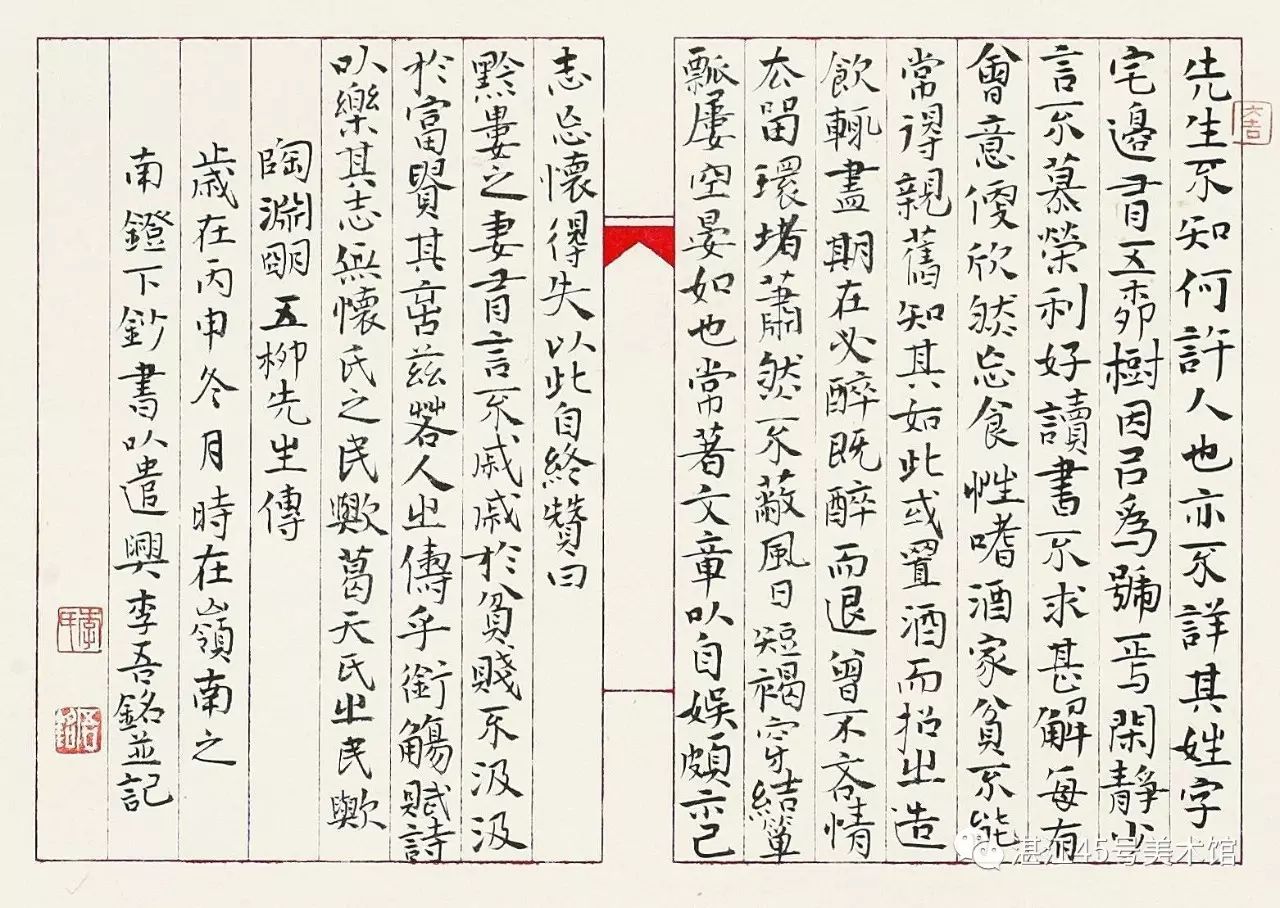 先生不知何許人也亦不詳其姓字
宅邊有五柳樹因以爲號焉閑靜少
言不慕榮利好讀書不求甚解每有
會意便欣然忘食性嗜酒家貧不能
常得親舊知其如此或置酒而招之造
飲輒盡期在必醉既醉而退曾不吝情
去留環堵蕭然不蔽風日短褐穿結簞
瓢屢空晏如也常著文章以自娛頗示己
志忘懷得失以此自終贊曰
黔婁之妻有言不戚戚於貧賤不汲汲
於富貴其言茲若人之儔乎銜觴賦詩
以樂其志無懷氏之民歟葛天氏之民歟
陶淵明五柳先生傳
歲在丙申冬月時在嶺南之
南鐙下鈔書以遣興李吾銘並記
大吉
吾銘
湛江45号美术馆